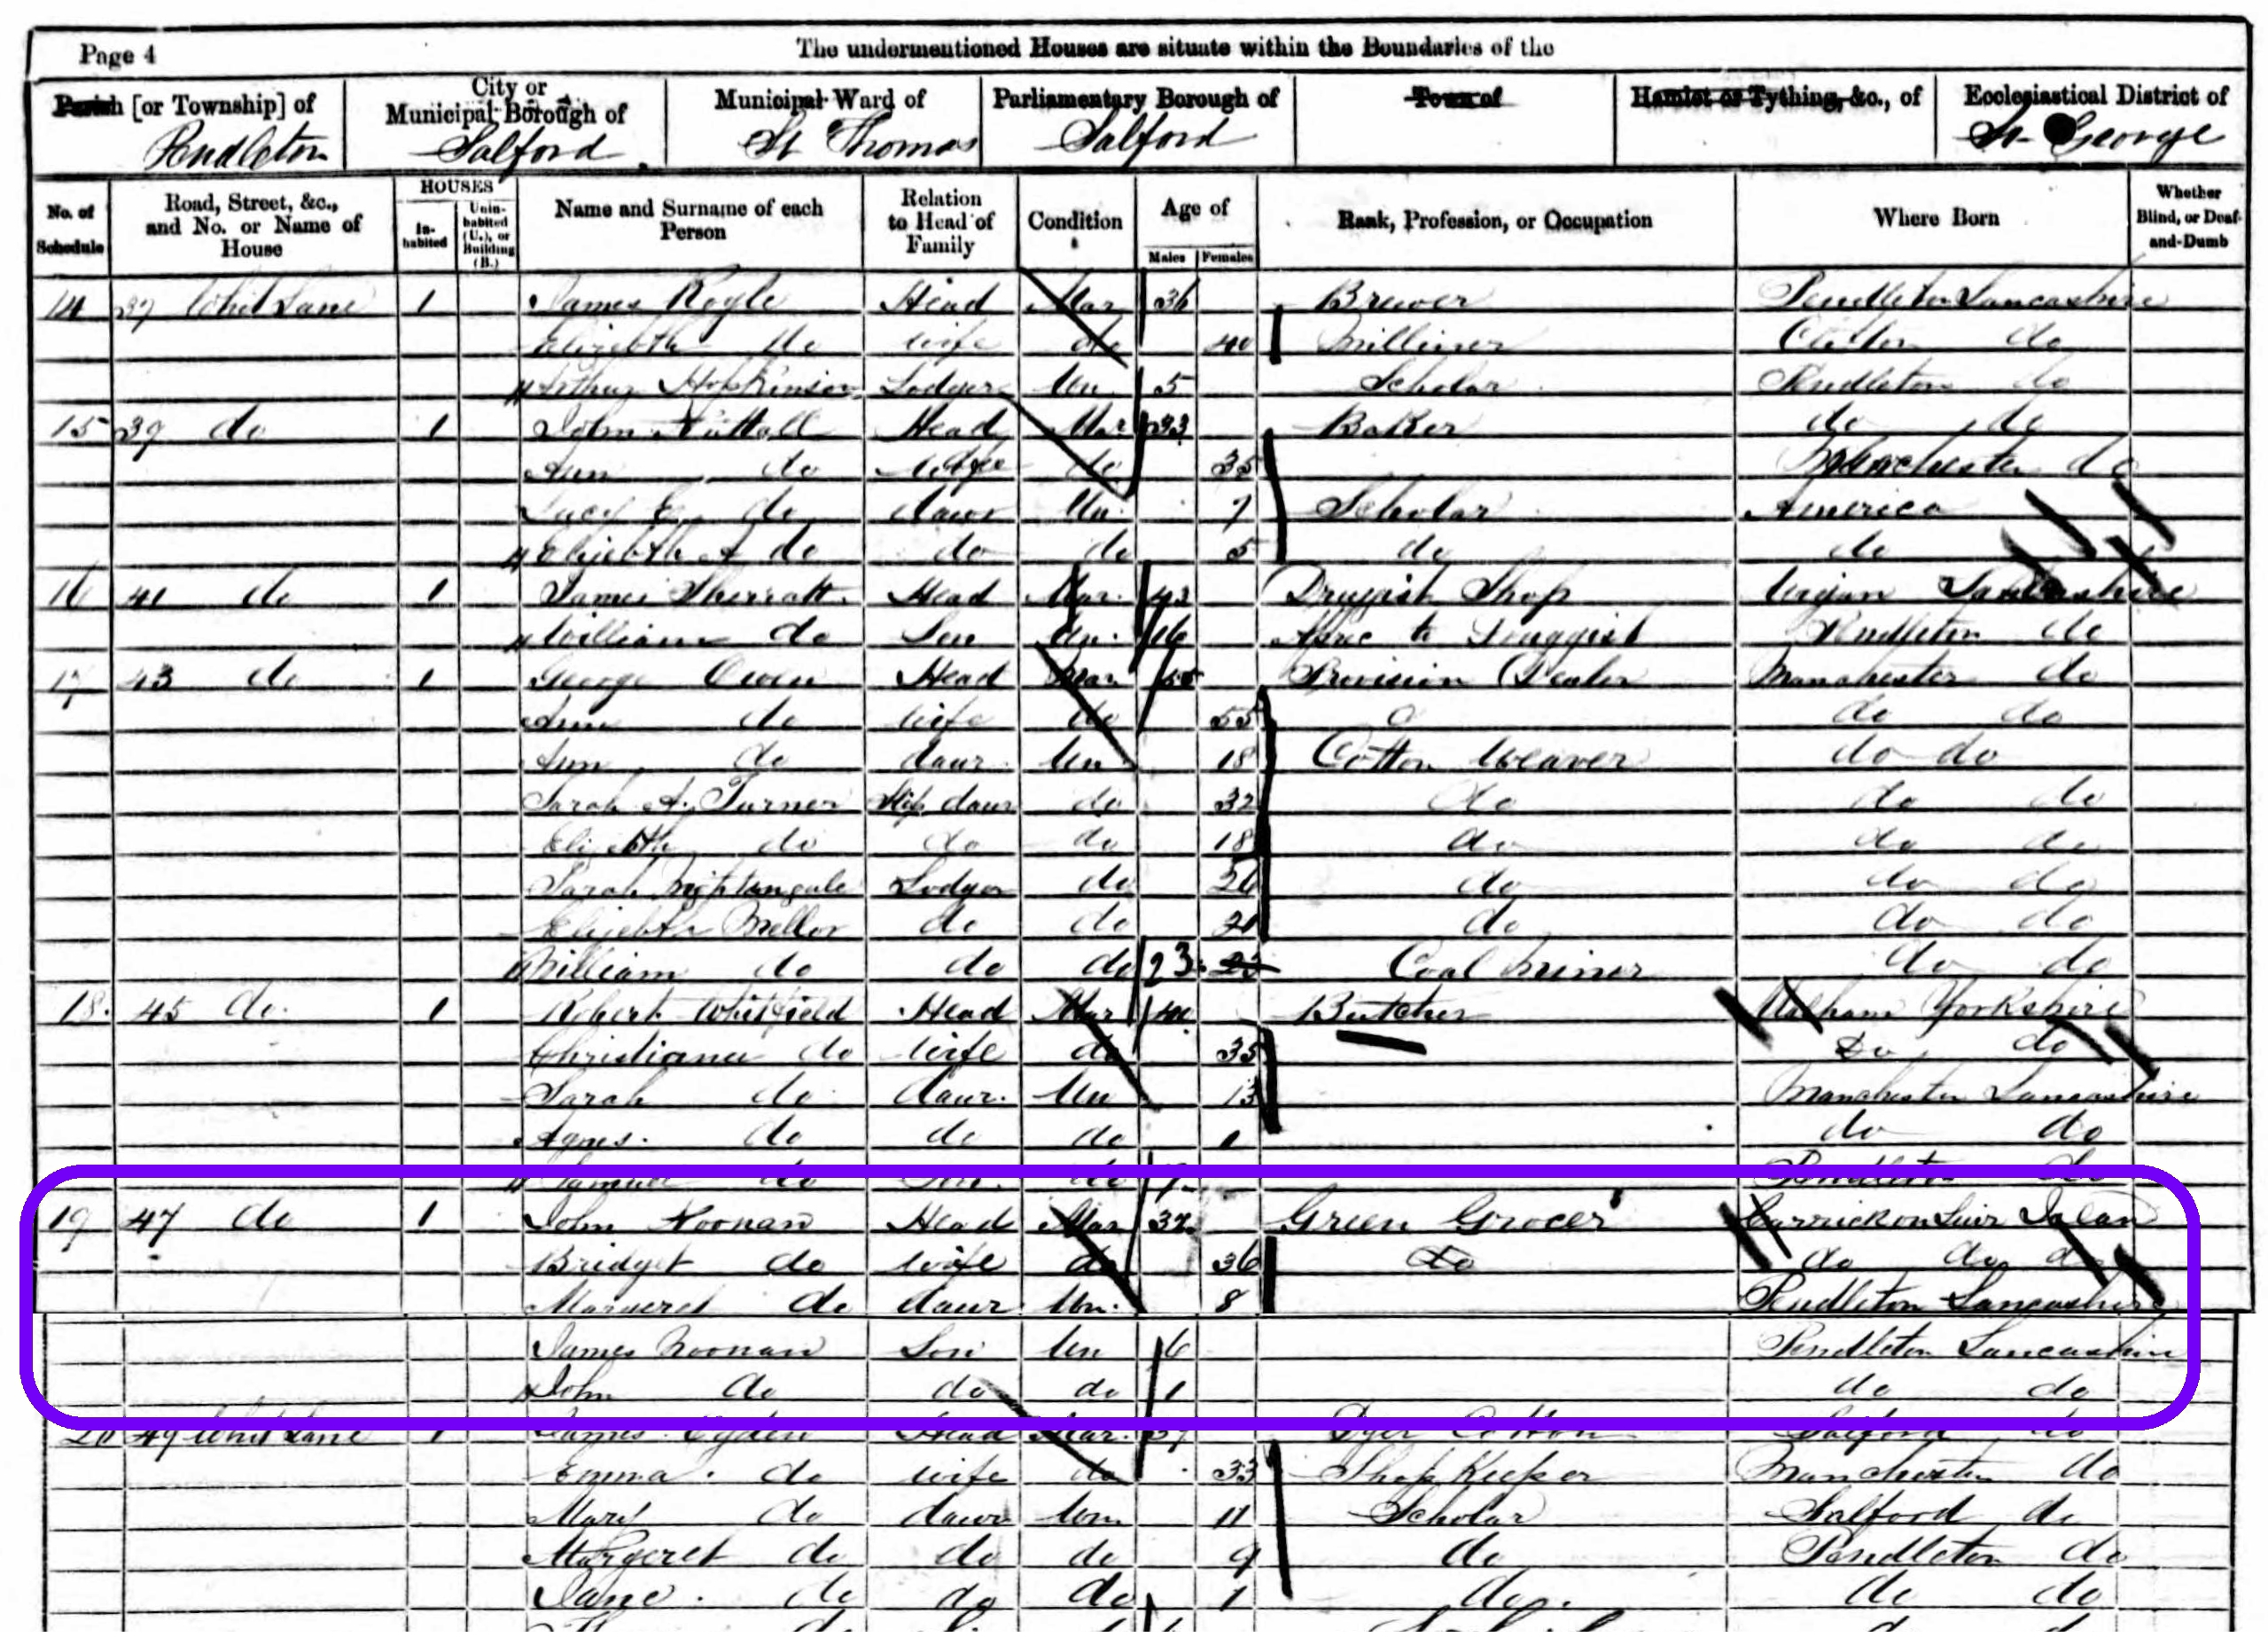 Page 4
The undermentioned Houses are situate within the Boundaries of the
Parish [or Township] of Pendleton
City or Municipal Borough of Salford
Municipal Ward of St Thomas
Parliamentary Borough of Salford
Town of
Hamlet or Tything, &c., of
Ecclesiastical District of St George
No. of Schedule
Road, Street, &c., and No. or Name of House
HOUSES
In-habited
Unin-habited (U.), or Building (B.)
Name and Surname of each Person
Relation to Head of Family
Condition
Age of
Males
Females
Rank, Profession, or Occupation
Where Born
Whether Blind, or Deaf-and-Dumb
14 37 Whit Lane 1 James Royle Head Mar 36 Brewer Pendleton Lancashire
Elizebth do wife do 40 Milliner Clifton do
Arthur Hopkinson Lodger Un 5 Scholar Pendleton do
15 39 do 1 John Nuttall Head Mar 33 Baker do do
Ann do do 35 Manchester do
Lucy E do daur Un. 7 Scholar America
Elizebth A do do do 5 do do
16 41 do 1 James Sherratt Head Mar. 43 Druggist Shop Wigan Lancashire
William do Son Un. 16 to Druggist Pendleton do
17 43 do 1 George Owen Head Mar 55 Provision Dealer Manchester do
Ann do wife do 55 do do
Ann do daur Un 18 Cotton Weaver do do
Sarah A. Turner Step daur do 32 do do do
Elizebth do do do 18 do do do
Sarah Nightangale Lodger do 26 do do do
Elizebth Mellor do do 21 do do do
William do do do 23 23 Coal Miner do do
18. 45 do. 1 Robert Whitfield Head Mar 40 Butcher Yorkshire
Christiana do wife do 35 Do do
Sarah do daur. Un 13 Manchester Lancashire
Agnes. do do do 1 do do
Samuel do Son. do Pendleton do
19 47 do 1 John Noonan Head Mar 37 Green Grocer Carrickon Suir
Bridget do wife do 36 do do do do
Margeret do daur Un. 8 Pendleton Lancashire
James Noonan Son Un 6 Pendleton Lancashire
John do do do 1 do do
20 49 Whit Lane 1 James Ogden Head Mar. Dyer Cotton Salford do
Emma. do wife do 33 Shop Keeper Manchester do
Mary do daur Un 11 Scholar Salford do
Margeret do do do 9 do Pendleton do
Jane. do do do 1 do. do do